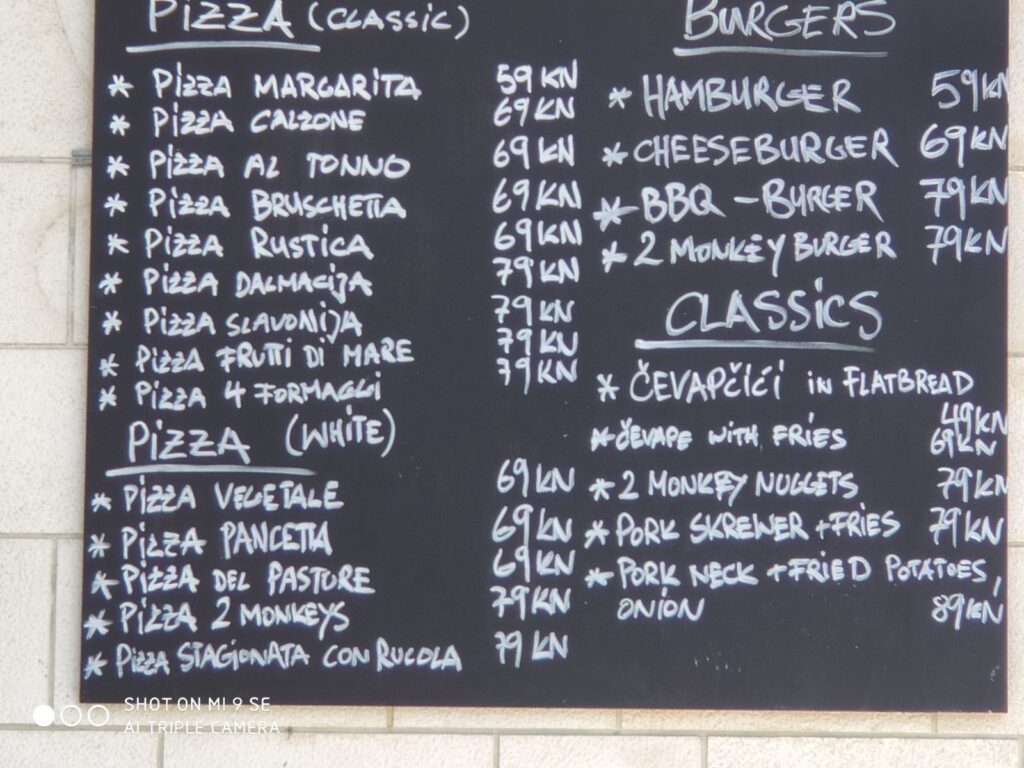 PIZZA (CLASSIC)
* PIZZA MARGARITA 59 KN
* PIZZA CALZONE 69 KN
* PIZZA AL TONNO 69 KN
* PIZZA BRUSCHETTA 69 KN
* PIZZA RUSTICA 69 KN
* PIZZA DALMACIJA 79 KN
* PIZZA SLAVONIJA 79 KN
* PIZZA FRUTTI DI MARE 79 KN
* PIZZA 4 FORMAGGI 79 KN
PIZZA (WHITE)
* PIZZA VEGETALE 69 KN
* PIZZA PANCETTA 69 KN
* PIZZA DEL PASTORE 69 KN
* PIZZA 2 MONKEYS 79 KN
* PIZZA STAGIONATA CON RUCOLA 79 KN
BURGERS
* HAMBURGER 59 KN
* CHEESEBURGER 69 KN
* BBQ - BURGER 79 KN
* 2 MONKEY BURGER 79 KN
CLASSICS
* ČEVAPČIĆI IN FLATBREAD
49 KN
* ČEVAPE WITH FRIES 69 KN
* 2 MONKEY NUGGETS 79 KN
* PORK SKREWER + FRIES 79 KN
* PORK NECK + FRIED POTATOES,
ONION 89 KN
SHOT ON MI 9 SE
AI TRIPLE CAMERA